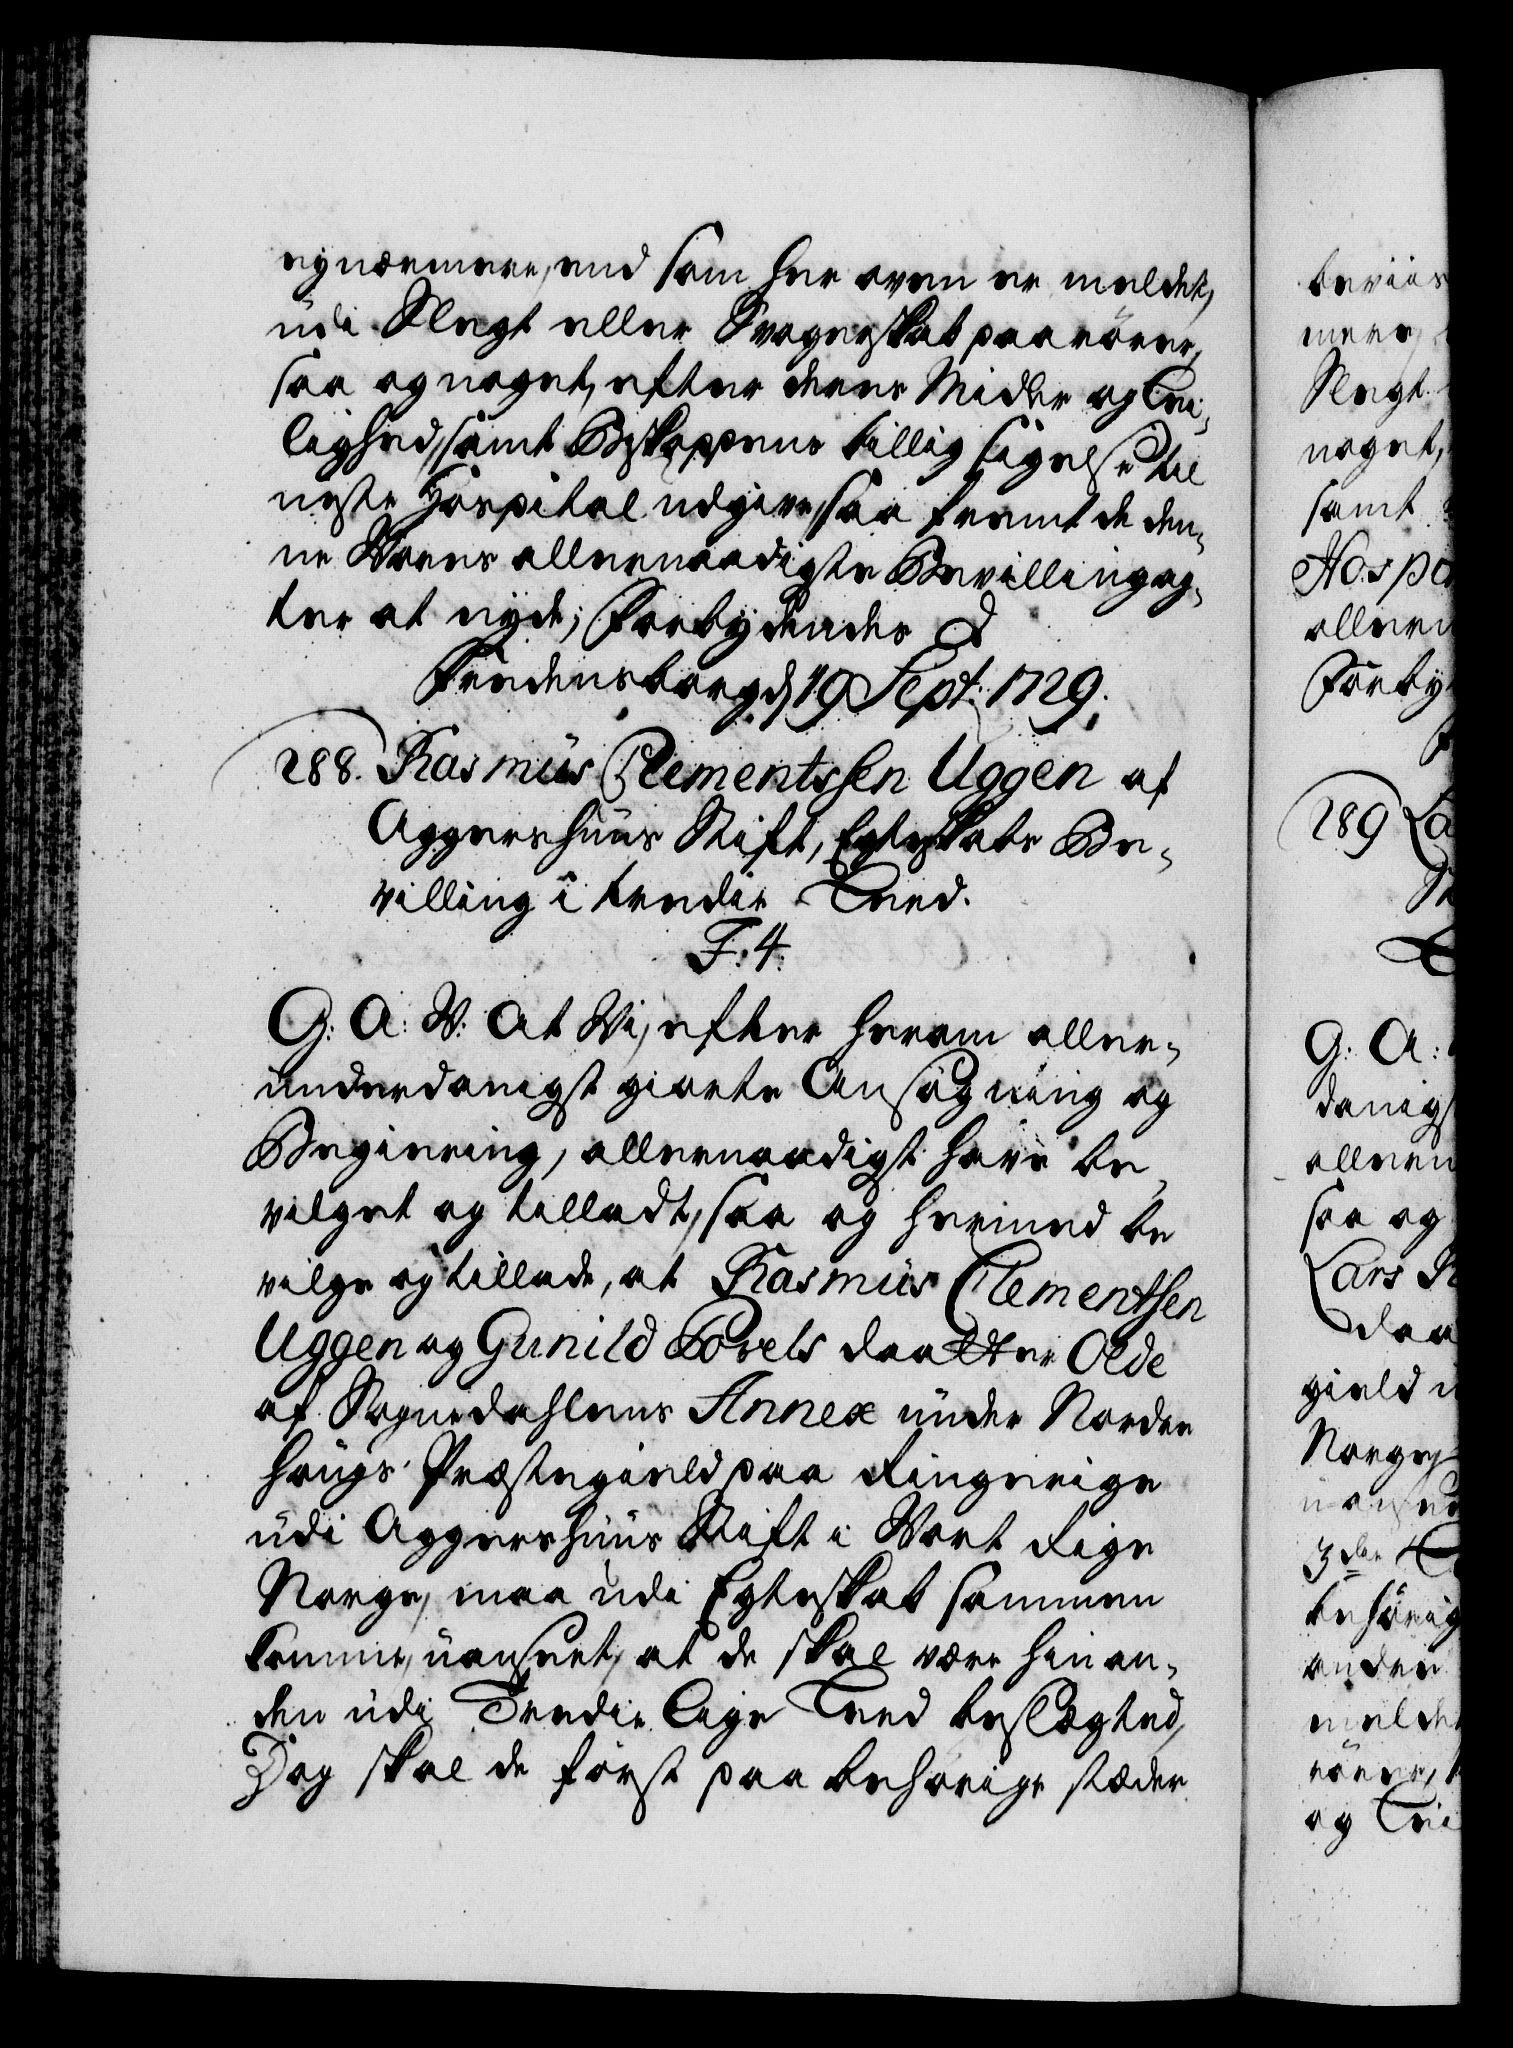 ey nærmere, end som her oven er meldet,
udi Slegt eller Svogerskab paarörer,
saa og noget, efter deres Midler og Lei-
lighed, samt Biskoppens billig sigelse til
neste Hospital udgive, saa fremt de den-
ne Vores allernaadigste Bevilling ag-
ter at nyde; Forbydendes &
Fredensborg d 19 Sept: 1729.
288. Rasmus Clementssen Uggen af
Aggershuus Stift, Egteskabs Be-
villing i tredie Leed.
F. 4.
G: A: V: At Vi, efter herom aller-
underdanigst giorte Ansögning og
Begiering, allernaadigst have be
vilget og tilladt, saa og hermed be
vilge og tillade, at Rasmus Clementsen
Uggen og Gunild Povels daatter Olde
af Sognedahlens Annex under Norder
hougs Præstegield paa Ringerige
udi Aggershuus Stift i Vort Rige
Norge, maa udi Egteskab sammen
komme, uanseet, at de skal være hinan-
den udi Tredie lige Leed beslægted,
Dog skal de först paa behörige stæder
beviis
meer,
Slegt
noget,
samt
Hospi
allern
Forby
289 La
St
G: A:
danigs
allern
saa og
Lars
daa
gield
Norge
uanse
3die
behörig
anden
melde
rörer,
og Lei